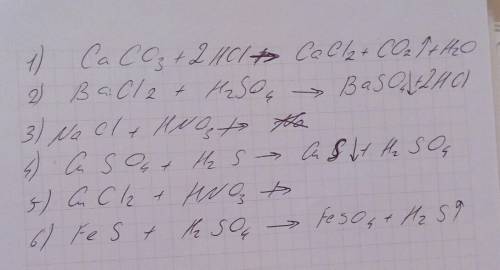 1) CaCO3 + 2HCl → CaCl2 + CO2↑ + H2O
2) BaCl2 + H2SO4 → BaSO4↓ + 2HCl
3) NaCl + HNO3 ↛
4) CuSO4 + H2S → CuS↓ + H2SO4
5) CuCl2 + HNO3 ↛
6) FeS + H2SO4 → FeSO4 + H2S↑